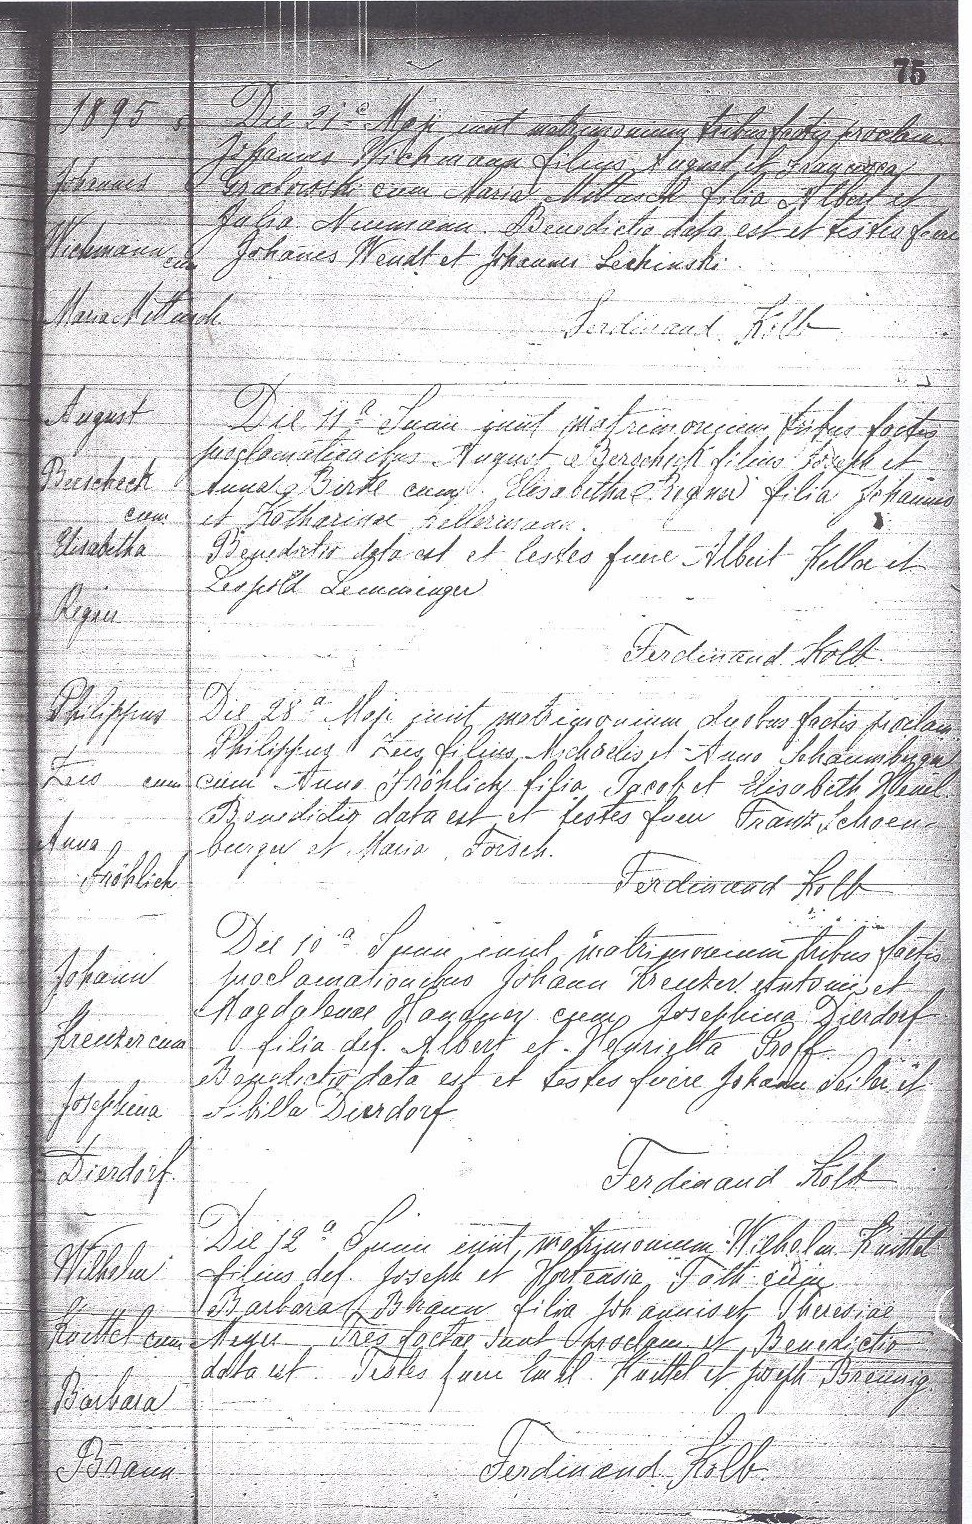 75
1895
Johannes
Wichmann cum
Maria Mittusch.
Die 21ª Maji iniit matrimonium tribus factis proclam.
Johannes Wichmann filius August et Francisca
Grabowski cum Maria Mittusch filia Albert et
Julia Neumann. Benedictio data est et testes fuere
Johanes Wendt et Johannes Lechinski.
Ferdinand Kolb
August
Berscheck
cum
Elisabetha
Regner
Die 11ª Junii iniit matrimonium tribus factis
proclamationibus August Berscheck filius Joseph et
Anna Birke cum Elisabetha Regner filia Johannes
et Katharinae Kellermann.
Benedictio data est et testes fuere Albert Keller et
Leopold Lemminger
Ferdinand Kolb.
Philippus
Zeis cum
Anna
Fröhlich
Die 28ª Maji iniit matrimonium duobus factis proclam
Philippus Zeis filius Michaelis et Anna Schaumburger
cum Anna Fröhlich filia Jacob et Elisabeth
Benedictio data est et testes fuere Franz Schoen-
burger et Maria Forsch.
Ferdinand Kolb
Johann
Kreuzer cum
Josephina
Dierdorf.
Die 10ª Junii iniit matrimonium tribus factis
proclamationibus Johann Kreuzer Antonii et
Magdalenae cum Josephina Dierdorf
filia def. Albert et Henrietta Proff.
Benedictio data est et testes fuere Johann Seiler et
Sibilla Dierdorf
Ferdinand Kolb
Wilhelm
Knittel cum
Barbara
Braun
Die 12ª Junii iniit matrimonium Wilhelm Knittel
filius def. Joseph et Hortensia cum
Barbara Braun filia Johannis et Theresiae
Meyer Tres factae sunt proclam. et Benedictio
data est. Testes fuere Emil Knittel et Joseph Breunig.
Ferdinand Kolb.